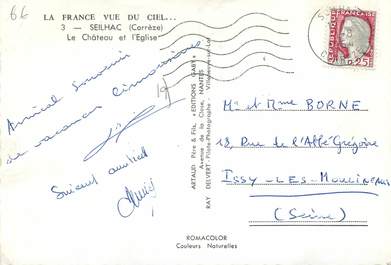 66
LA FRANCE VUE DU CIEL...
3 — SEILHAC (Corrèze)
Le Château et l'Eglise
Amical Souvenir
de vacances
ARTAUD Père & Fils, "EDITIONS GABY"
Avenue de la Close, NANTES
RAY DELVERT - Pilote-Photographe - Villeneuve-sur-Lot
REPUBLIQUE
FRANÇAISE
0,25
Mr et Mme BORNE
18, Rue de l'Abbé Grégoire
ISSY-LES-MOULINEAUX
(Seine)
ROMACOLOR
Couleurs Naturelles